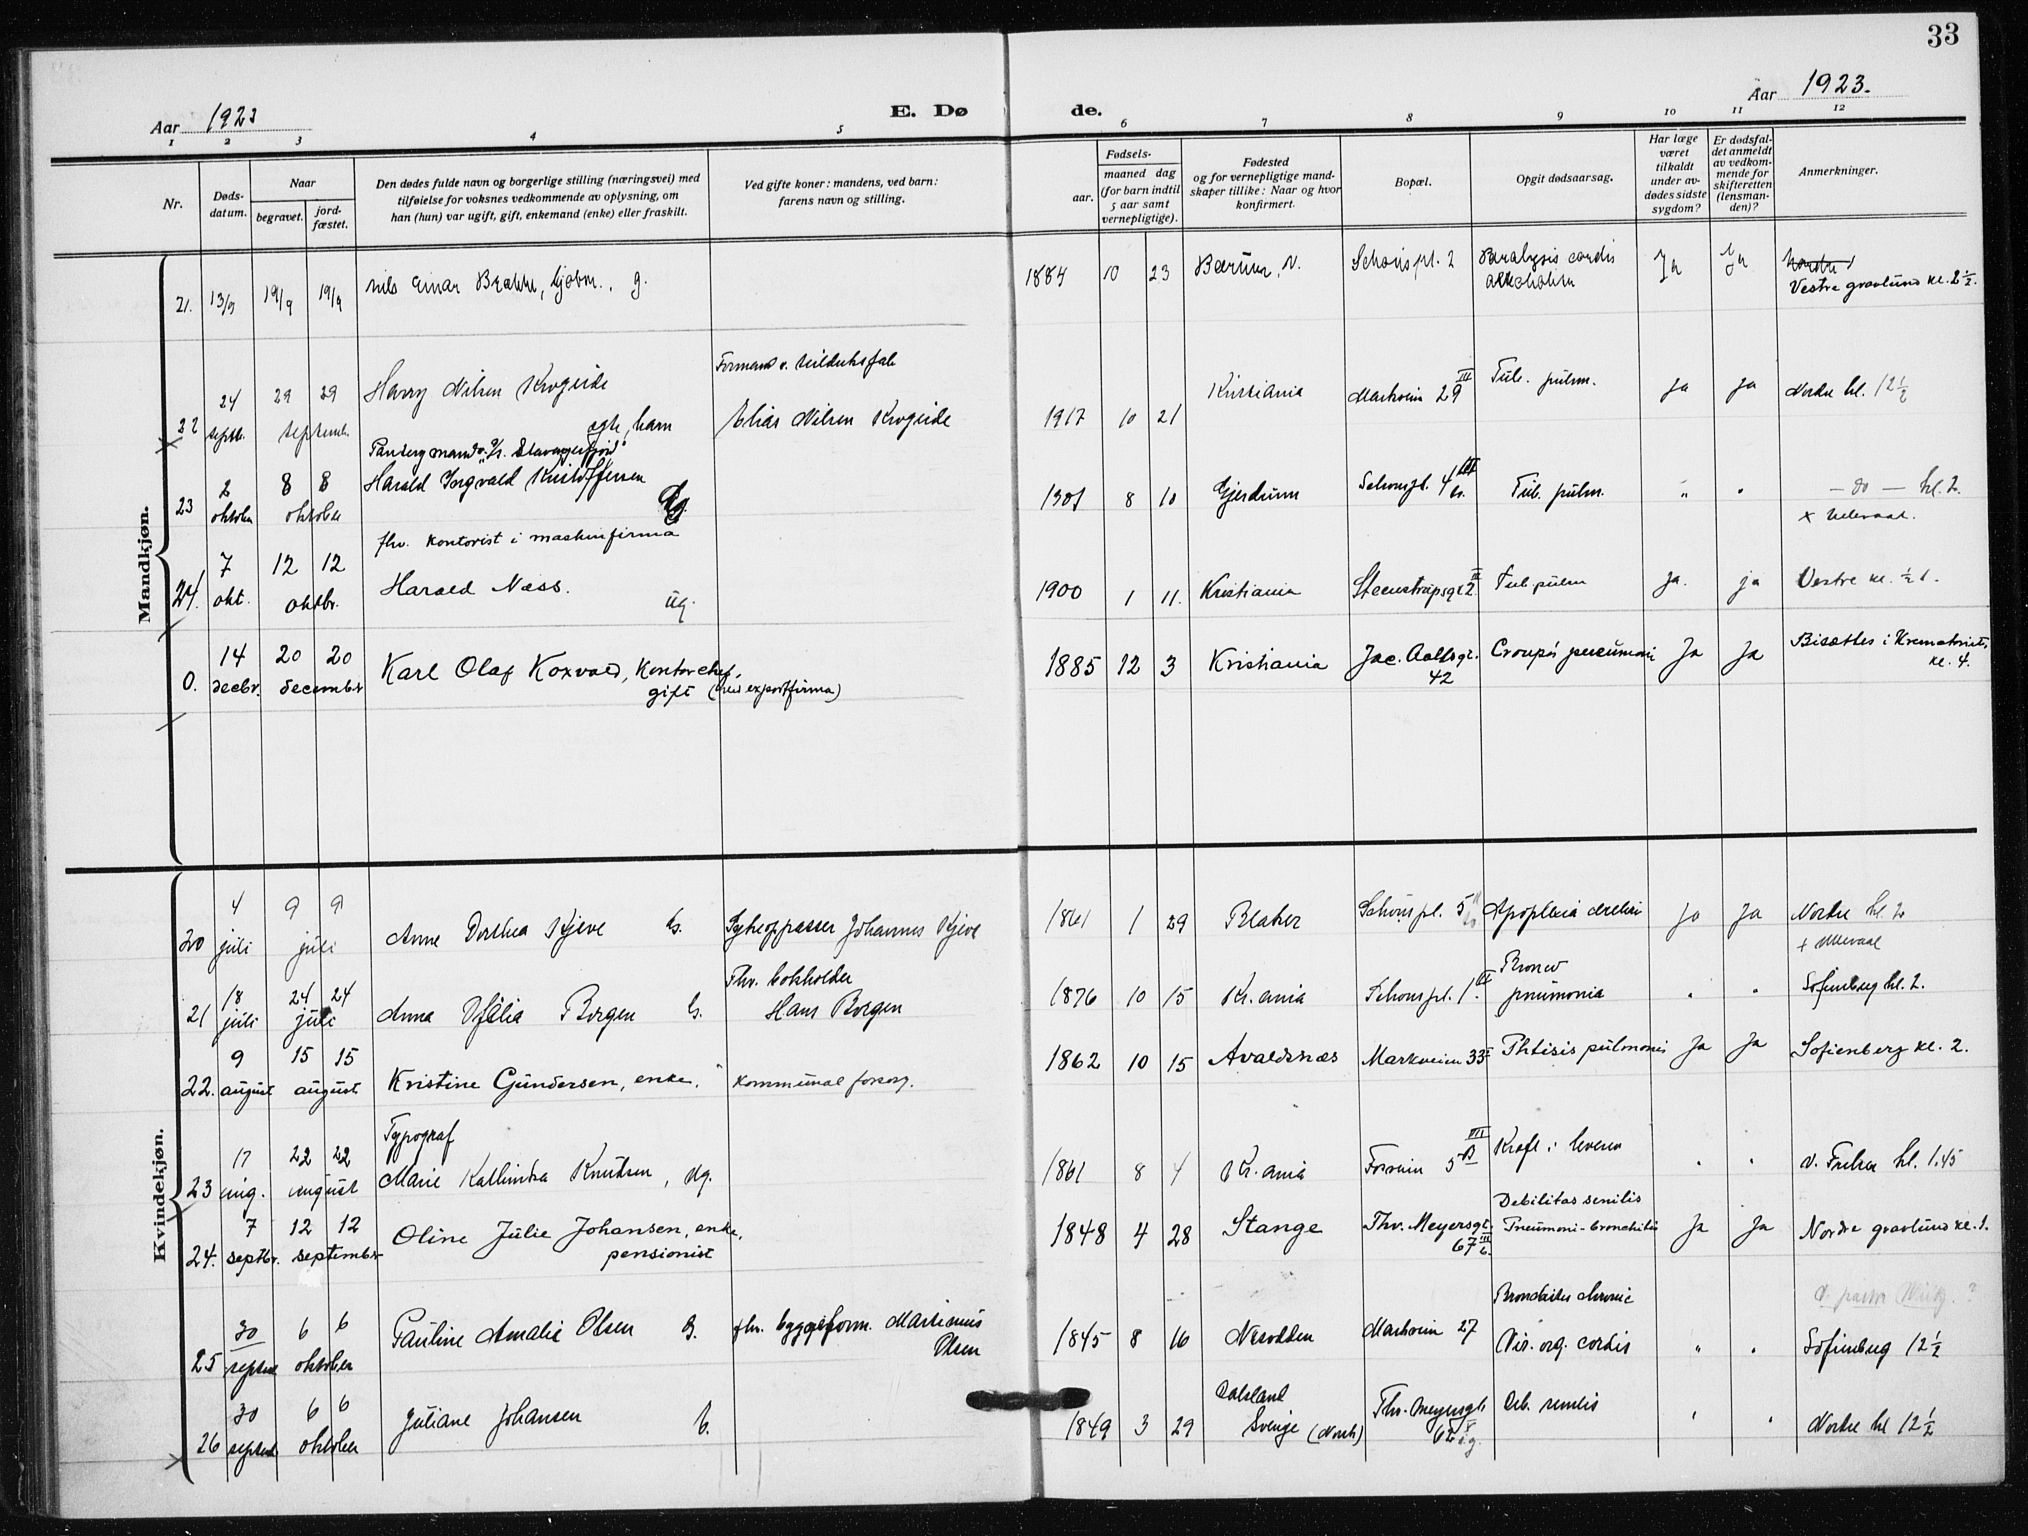 33
Aar 1923
E. Dø
de.
Aar 1923.
1 2 3 4 5 6 7 8 9 10 11 12
Nr.
Døds-
datum.
Naar
begravet.
jord-
fæstet.
Den dødes fulde navn og borgerlige stilling (næringsvei) med
tilføielse for voksnes vedkommende av oplysning, om
han (hun) var ugift, gift, enkemand (enke) eller fraskilt.
Ved gifte koner: mandens, ved barn:
farens navn og stilling.
Fødsels-
aar.
maaned dag
(for barn indtil
5 aar samt
vernepligtige).
Fødested
og for vernepligtige mand-
skaper tillike: Naar og hvor
konfirmert.
Bopæl.
Opgit dødsaarsag.
Har læge
været
tilkaldt
under av-
dødes sidste
sygdom?
Er dødsfal-
det anmeldt
av vedkom-
mende for
skifteretten
(lensman-
den)?
Anmerkninger.
Mandkjøn.
21. 13/9 19/9 19/9 Nils Einar g. 1884 10 23 Bærum, N. Schous pl. 2 Paralysis cordis Ja Ja
Vestre gravlund kl. 2 ½.
Formand v.
22 24 septb. 29 29 septemb. Harry Nilsen Krogeide
ægte, barn Elias Nilsen Krogeide 1917 10 21 Kristiania Markveien 29 III Tub. pulm. ja ja Nordre kl. 12 ½
23 2 oktober 8 8 oktober Harald Ingvald Kristoffersen
ug. 1901 8 10 Gjerdrum Schouspl. 4 Tub. pulm. " " — do — kl. 2.
x Ullevaal.
fhv. kontorist i maskinfirma
24. 7 okt. 12 12 oktbr. Harald Næss. ug. 1900 1 11. Kristiania Steenstrupsgt 2 Tub. pulm ja. ja Vestre kl. ½ 1.
0. 14 decbr. 20 20 december Karl Olaf Koxvold, Kontorchef,
gift (hos exportfirma) 1885 12 3 Kristiania Jac. Aallsgt. 42 Croupøs pneumoni Ja Ja Bisættes i Krematoriet,
kl. 4.
Kvindekjøn.
20 4 juli 9 9 juli Anne Dorthea Kjeve G. Sykeoppasser Johannes Kjeve 1861 1 29 Blaker Schous pl. 5 Apoplexia cerebri ja ja Nordre kl. 2
+ Ullevaal
Fhv. bokholder
21 18 juli 24 24 juli Anna Ofelia Borgen G. Hans Borgen 1876 10 15 Kr.ania Schous pl. 1. Bronco
pneumonia " " Sofienberg kl. 2.
22. 9 august 15 15 august Kristine Gundersen, enke, kommunal forsorg. 1862 10 15 Avaldsnæs Markveien 33 Phtisis pulmonis Ja Ja Sofienberg kl. 2.
Typograf
23 17 aug. 22 22 august Marie Kathinka Knudsen, ug. 1861 8 4 Kr.ania Kræft i leveren " " V. Frelser kl. 1.45
24. 7 septbr. 12 12 september Oline Julie Johansen, enke,
pensionist 1848 4 28 Stange Thv. Meyersgt. 67 III Debilitas senilis
Pneumoni-bronchitis Ja Ja Nordre gravlund kl. 1.
25 30 septemb 6 6 oktober Pauline Amalie Olsen G. fhv. byggeform. Martinius
Olsen 1845 8 16 Nesodden Markveien 27 Bronchitis chronic
Vit. org. cordis " " Sofienberg 12 ½
26 30 septemb 6 6 oktober Juliane Johansen G. 1849 3 29 Dalsland
Sverige (Norsk) Thv. Meyersgt. 62 Deb. senilis " " Nordre kl 12 ½